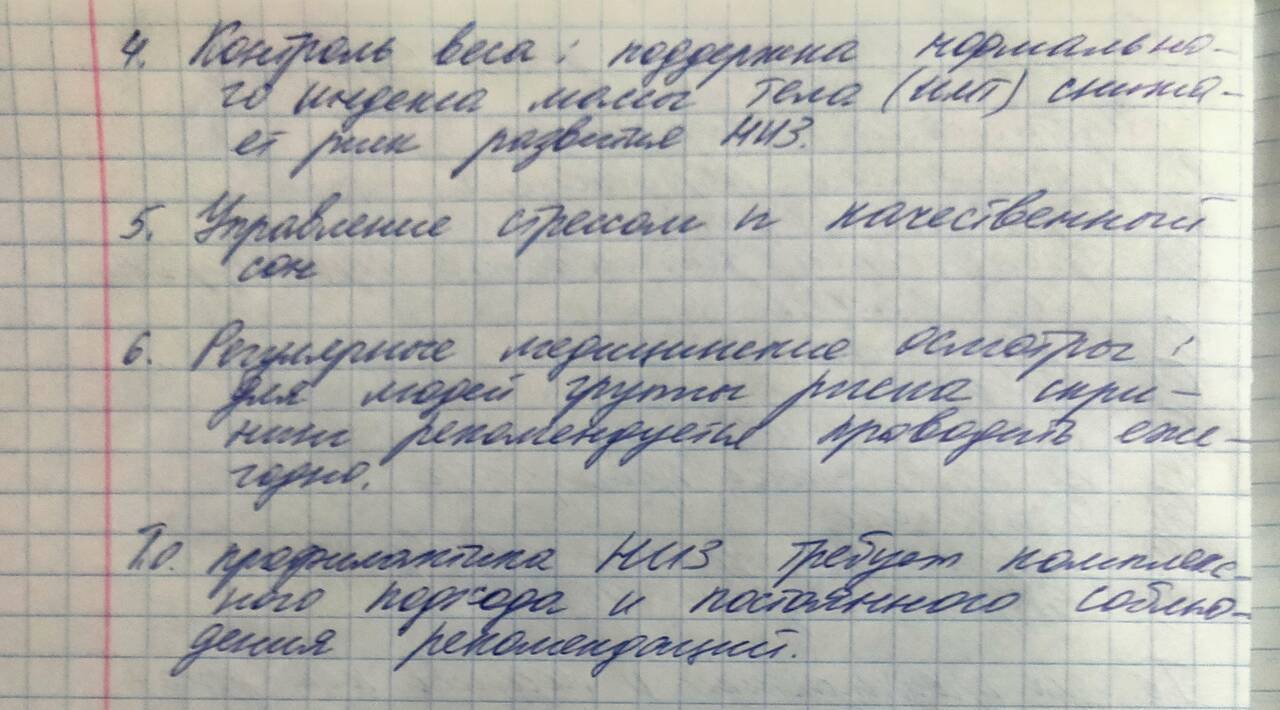 4. Контроль веса: поддержка нормально-
го индекса массы тела (ИМТ) снижа-
ет риск развития НИЗ.
5. Управление стрессом и качественный
сон
6. Регулярные медицинские осмотры:
для людей группы риска скри-
нинг рекомендуется проводить еже-
годно.
Т.о. профилактика НИЗ требует комплекс-
ного подхода и постоянного соблю-
дения рекомендаций.